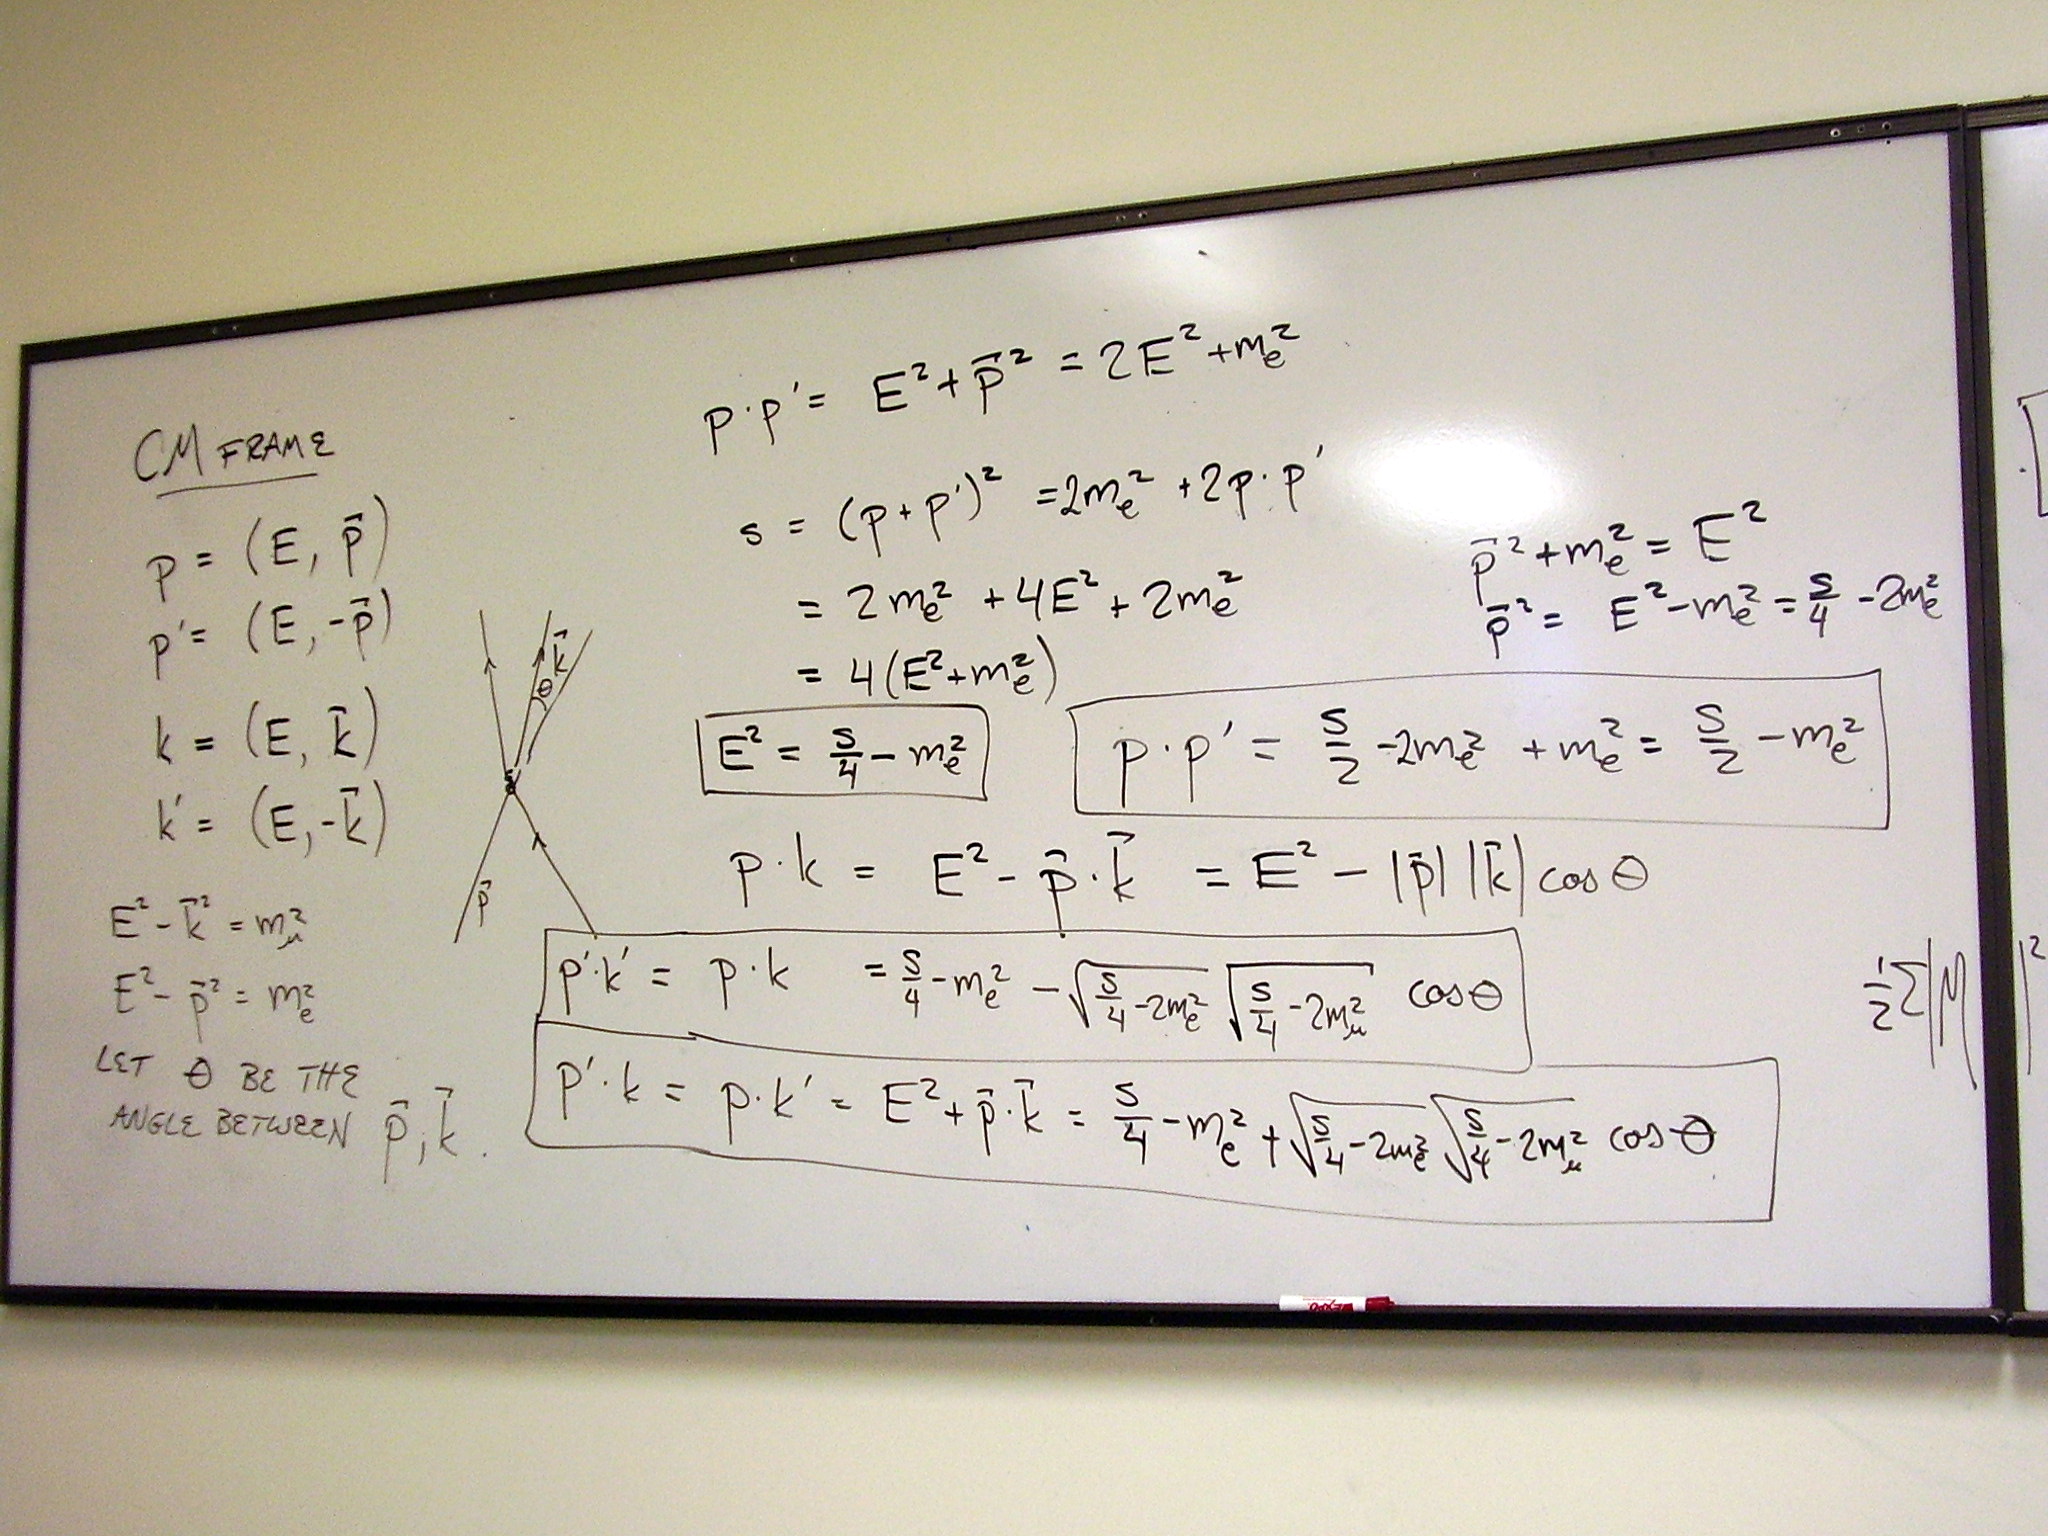 CM FRAME
p = (E, p⃗)
p' = (E, -p⃗)
k = (E, k⃗)
k' = (E, -k⃗)
E² - k⃗² = m_μ²
E² - p⃗² = m_e²
LET θ BE THE
ANGLE BETWEEN p⃗, k⃗.
k⃗
θ
p⃗
p·p' = E² + p⃗² = 2E² + m_e²
s = (p + p')² = 2m_e² + 2p·p'
= 2m_e² + 4E² + 2m_e²
= 4(E² + m_e²)
E² = s/4 - m_e²
p⃗² + m_e² = E²
p⃗² = E² - m_e² = s/4 - 2m_e²
p·p' = s/2 - 2m_e² + m_e² = s/2 - m_e²
p·k = E² - p⃗·k⃗ = E² - |p⃗| |k⃗| cos θ
p'·k' = p·k = s/4 - m_e² - √(s/4 - 2m_e²) √(s/4 - 2m_μ²) cos θ
p'·k = p·k' = E² + p⃗·k⃗ = s/4 - m_e² + √(s/4 - 2m_e²) √(s/4 - 2m_μ²) cos θ
1/2 Σ|M|²
EXPO